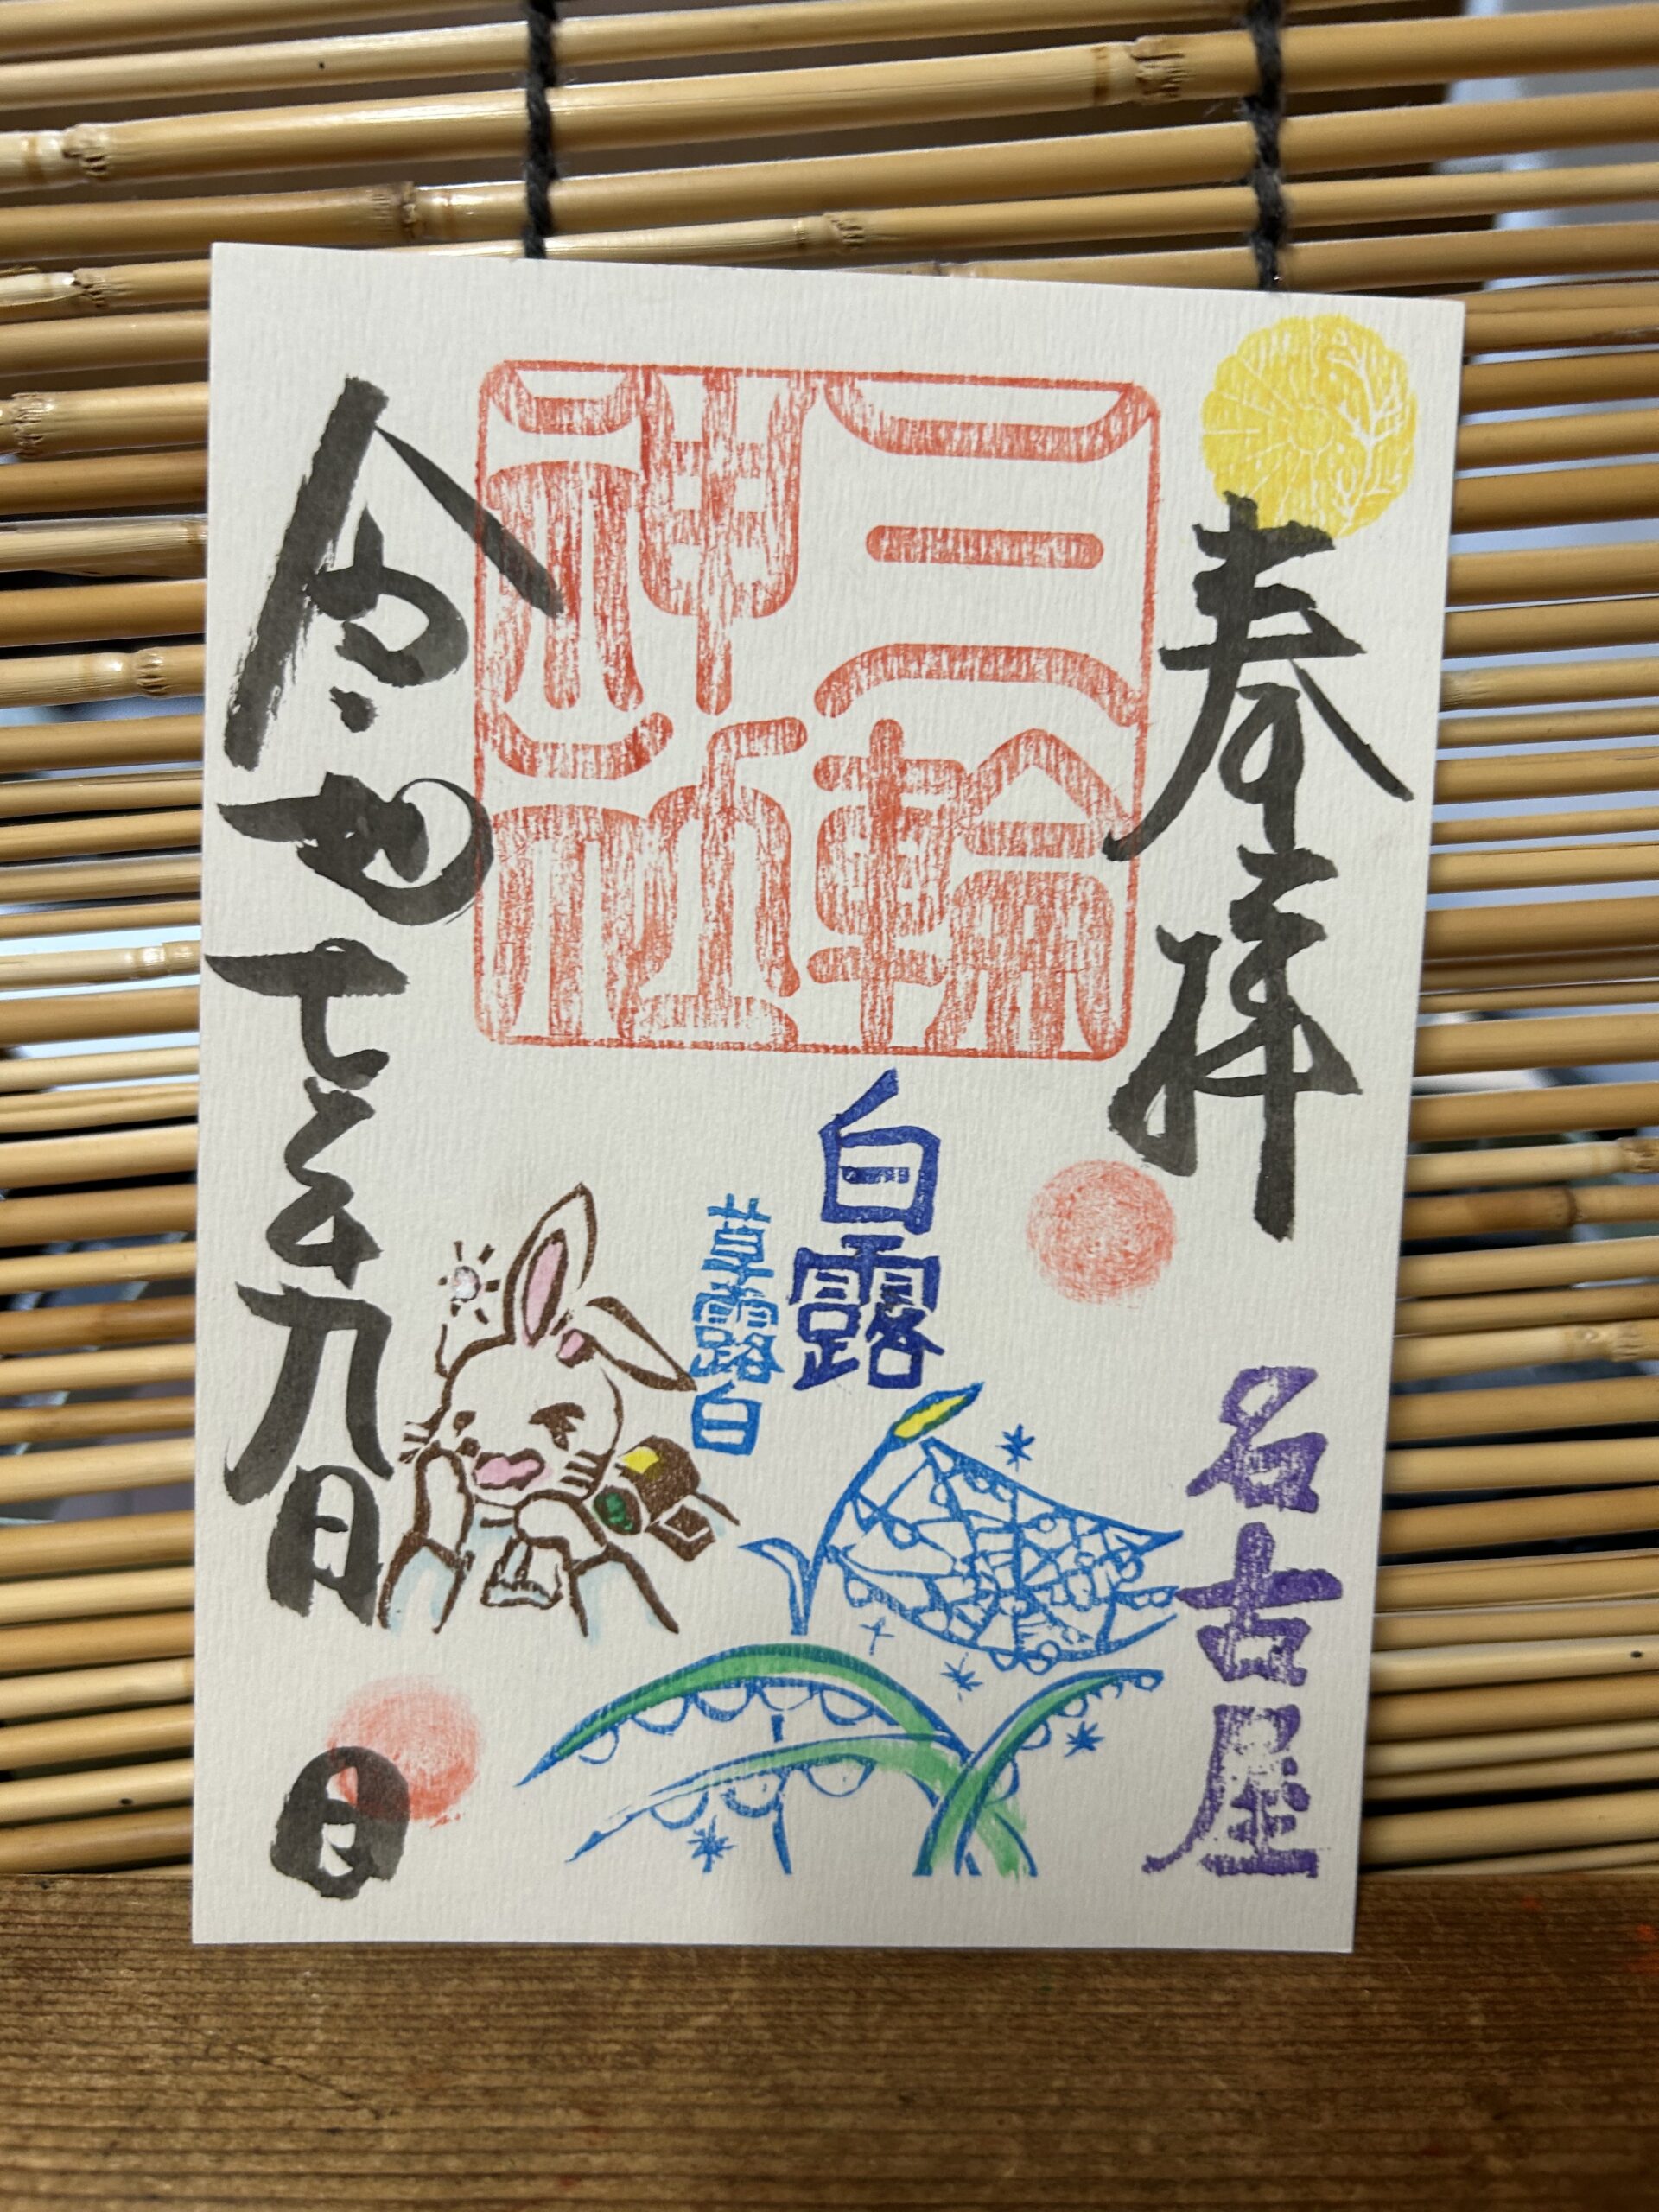 奉拝
名古屋
三輪
神社
白露
草露白
令和七年九月　日